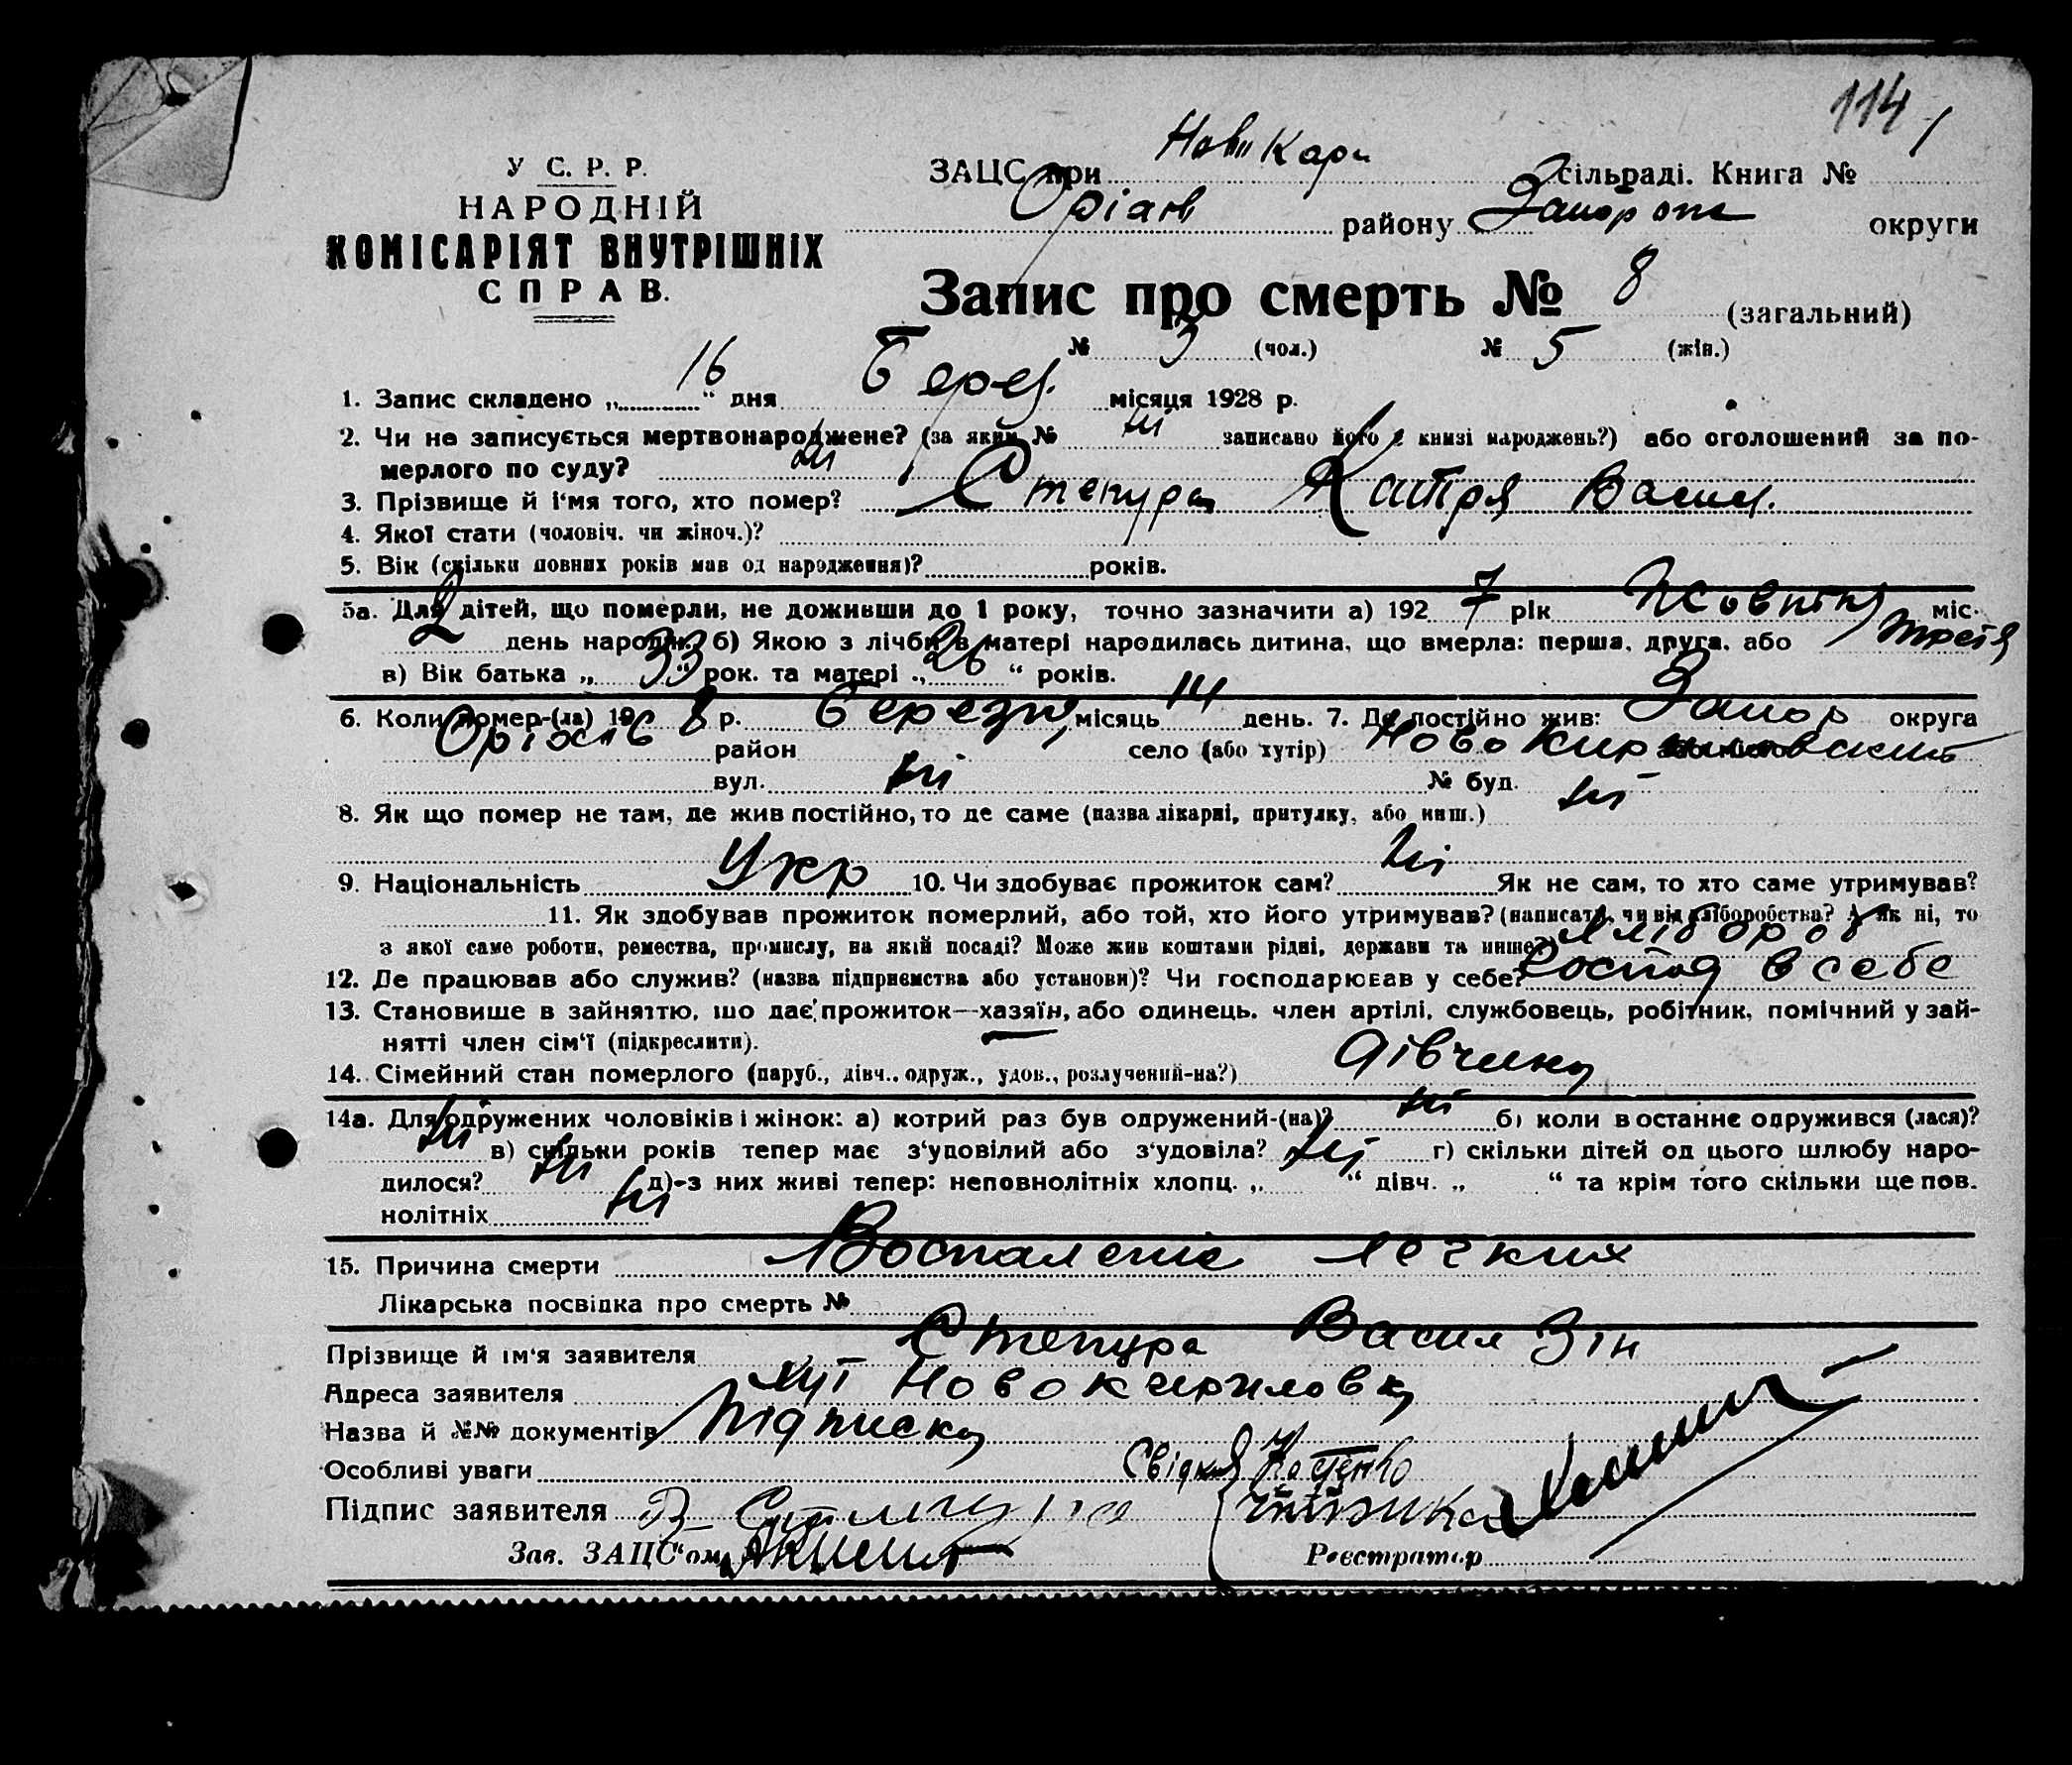 114
У С. Р. Р.
НАРОДНІЙ
КОМІСАРІЯТ ВНУТРІШНІХ
СПРАВ.
ЗАЦС при Ново Кари сільраді. Книга №
Оріхів району Запоріж округи
Запис про смерть № 8 (загальний)
№ 3 (чол.) № 5 (жін.)
1. Запис складено „ 16 “ дня Берез. місяця 1928 р.
2. Чи не записується мертвонароджене? (за яким № ні записано його в книзі народжень?) або оголошений за по-
мерлого по суду? ні
3. Прізвище й і'мя того, хто помер? Степура Катря Васил.
4. Якої стати (чоловіч. чи жіноч.)?
5. Вік (скільки повних років мав од народження)? років.
5а. Для дітей, що померли, не доживши до 1 року, точно зазначити а) 192 7 рік Жовтня міс.
2 день народж. б) Якою з лічби в матері народилась дитина, що вмерла: перша, друга, або третя
в) Вік батька „ 33 “ рок. та матері „ 26 “ років.
6. Коли помер-(ла) 19 8 р. Березня місяць 14 день. 7. Де постійно жив: Запор округа
Оріхів район село (або хутір) Ново Кириловский
вул. ні № буд. ні
8. Як що помер не там, де жив постійно, то де саме (назва лікарні, притулку, або инш.)
9. Національність Укр 10. Чи здобуває прожиток сам? ні Як не сам, то хто саме утримував?
11. Як здобував прожиток померлий, або той, хто його утримував? (написати, чи від хліборобства? А як ні, то
з якої саме роботи, ремества, промислу, на якій посаді? Може жив коштами рідні, держави та инше?) Хлібороб
12. Де працював або служив? (назва підприємства або установи)? Чи господарював у себе? Господ в себе
13. Становище в зайняттю, що дає прожиток—хазяїн, або одинець, член артілі, службовець, робітник, помічний у зай-
нятті член сім'ї (підкреслити).
14. Сімейний стан померлого (паруб., дівч., одруж., удов., розлучений-на?) дівчина
14а. Для одружених чоловіків і жінок: а) котрий раз був одружений-(на)? ні б) коли в останнє одружився (лася)?
ні в) скільки років тепер має з'удовілий або з'удовіла? ні г) скільки дітей од цього шлюбу наро-
дилося? ні д) з них живі тепер: неповнолітніх хлопц. „ “ дівч. „ “ та крім того скільки ще пов.
нолітніх ні
15. Причина смерти Воспаление легких
Лікарська посвідка про смерть №
Прізвище й ім'я заявителя Степура Васил Зін
Адреса заявителя хут Новокириловка
Назва й №№ документів Підписка
Особливі уваги Свідки Костенко
Підпис заявителя В Степура
Зав. ЗАЦС'ом Реєстратор